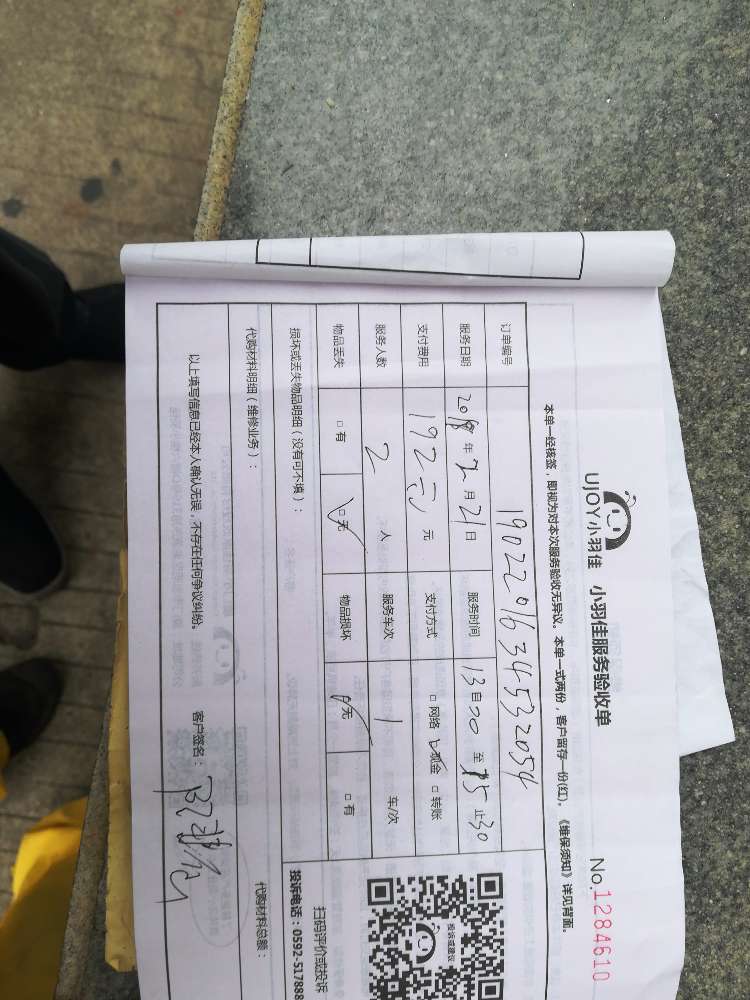 UJOY小羽佳 小羽佳服务验收单 No.1284610
本单一经核签，即视为对本次服务验收无异议。本单一式两份，客户留存一份(红)。《维保须知》详见背面。
订单编号 19022016345332054
服务日期 2018年2月21日 服务时间 13自30 至 15止30
支付费用 192元 元 支付方式 □网络 □现金 □转账
服务人数 2 人 服务车次 1 车/次
物品丢失 □有 □无 物品损坏 □无 □有
损坏或丢失物品明细（没有可不填）：
扫码评价或投诉
投诉电话：0592-517888
投诉或建议
代购材料明细（维修业务）：
代购材料总额：
以上填写信息已经本人确认无误，不存在任何争议纠纷。 客户签名：